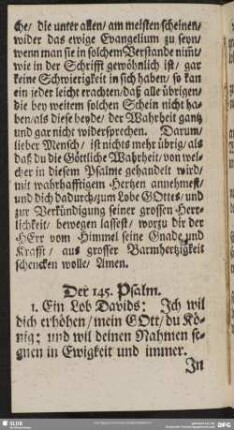 che/ die unter allen/ am meisten scheinen/
wider das ewige Evangelium zu seyn/
wenn man sie in solchem Verstande nim̃t/
wie in der Schrifft gewöhnlich ist/ gar
keine Schwierigkeit in sich haben/ so kan
ein jeder leicht erachten/ daß alle übrigen/
die bey weitem solchen Schein nicht ha-
ben/ als diese beyde/ der Wahrheit gantz
und gar nicht widersprechen. Darum/
lieber Mensch/ ist nichts mehr übrig/ als
daß du die Göttliche Wahrheit/ von wel-
cher in diesem Psalme gehandelt wird/
mit wahrhafftigem Hertzen annehmest/
und dich dadurch/ zum Lobe GOttes/ und
zur Verkündigung seiner grossen Herr-
lichkeit/ bewegen lassest/ worzu dir der
HErr vom Himmel seine Gnade und
Krafft/ aus grosser Barmhertzigkeit
schencken wolle/ Amen.
Der 145. Psalm.
1. Ein Lob Davids: Jch wil
dich erhöhen/ mein GOtt/ du Kö-
nig; und wil deinen Nahmen se-
gnen in Ewigkeit und immer.
Jn
SLUB